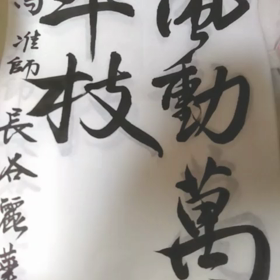 風動萬
年枝
准師 長谷麗華